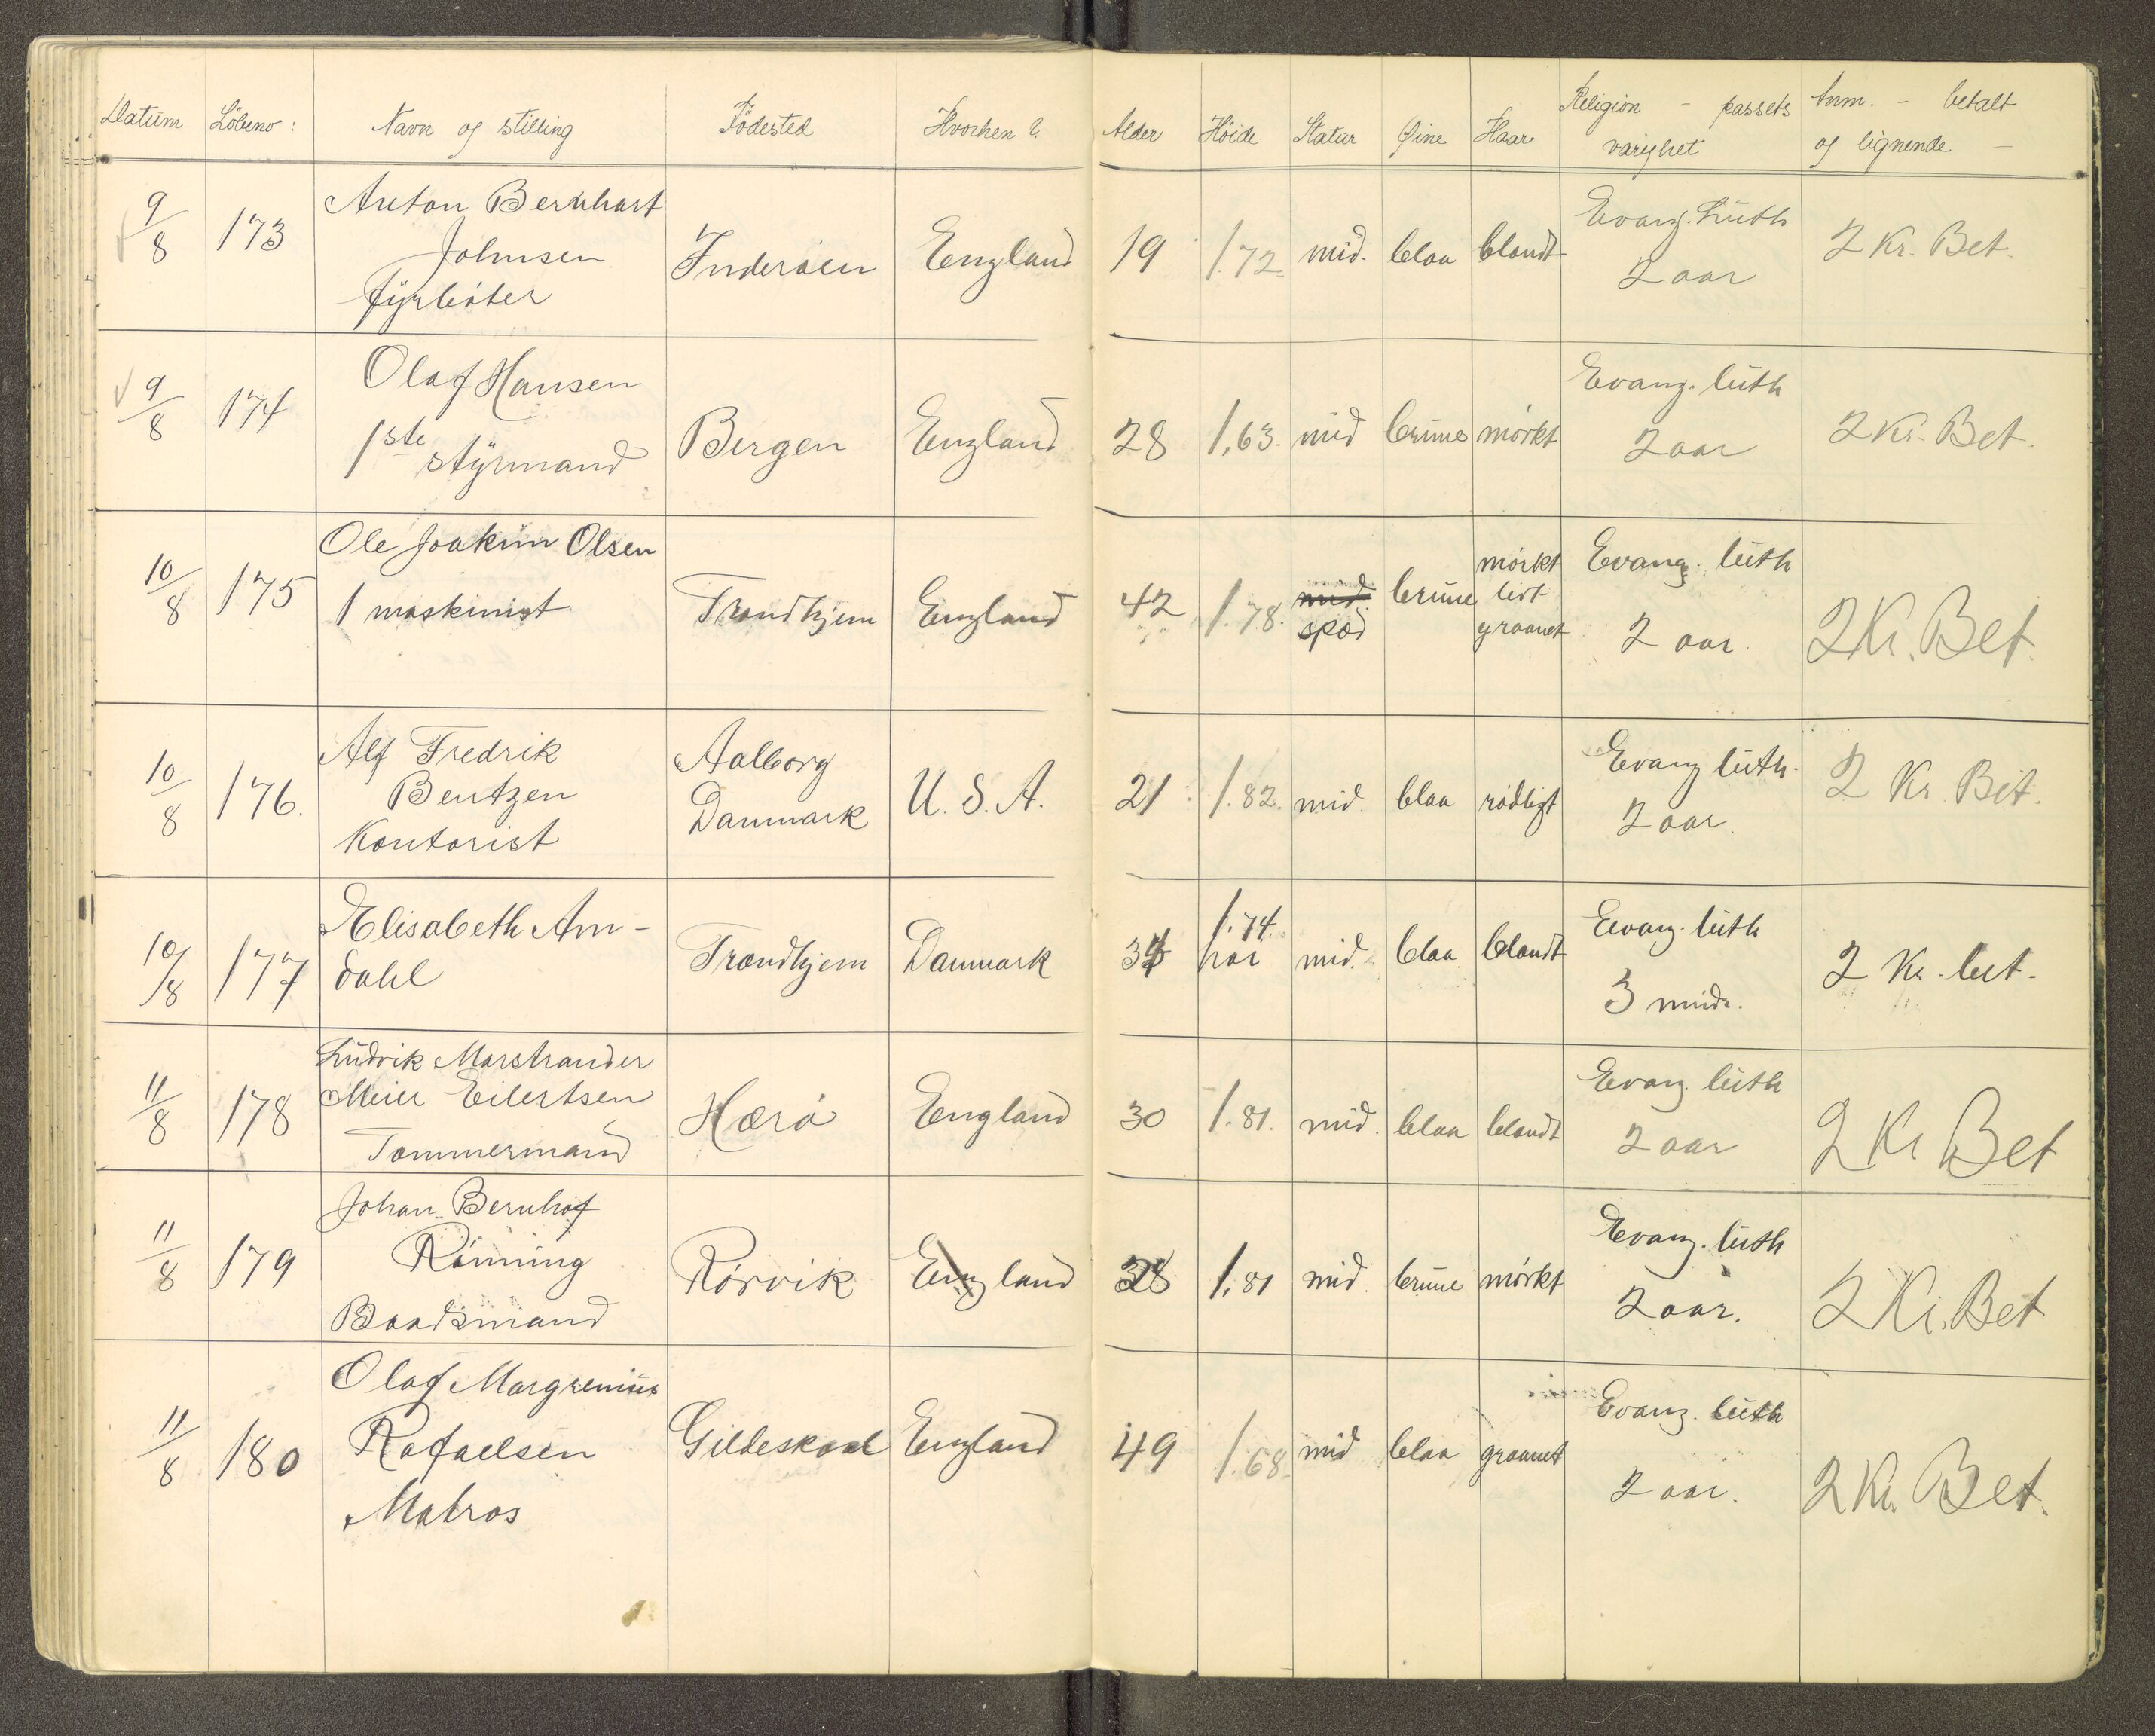 Datum Löbeno: Navn og stilling Födested Hvorhen Alder Høide Statur Øine Haar Religion - passets Anm. - betalt
varighet og lignende -
9/8 173 Anton Bernhart
Johnsen
fyrbøter
Inderøen England 19 1.72 mid. blaa blondt Evang. Luth
2 aar
2 Kr. Bet.
9/8 174 Olaf Hansen
1ste styrmand
Bergen England 28 1,63. mid brune mörkt Evang. luth
2 aar
2 Kr. Bet.
10/8 175 Ole Joakim Olsen
1 maskinist
Trondhjem England 42 1.78. mid.
spæd
brune mörkt
lidt
graanet
Evang. luth
2 aar.
2 Kr. Bet.
10/8 176. Alf Fredrik
Bentzen
Kontorist
Aalborg
Danmark
U.S.A. 21 1.82. mid. blaa rödligt Evang luth.
2 aar.
2 Kr. Bet.
10/8 177 Elisabeth Am-
dahl
Trondhjem Danmark 34 1.74.
høi
mid. blaa blondt Evang. luth
3 mndr.
2 Kr. bet.
11/8 178 Ludvik Marstrander
Meier Eilertsen
Tømmermand
Herø England 30 1.81. mid. blaa blondt Evang. luth
2 aar
2 Kr Bet
11/8 179 Johan Bernhof
Rönning
Baadsmand
Rörvik England 1,81 mid. brune mörkt Evang. luth
2 aar.
2 Kr. Bet
11/8 180 Olaf Margrenius
Rafaelsen
Matros
Gildeskaal England 49 1.68. mid blaa graanet Evang. luth
2 aar.
2 Kr. Bet.